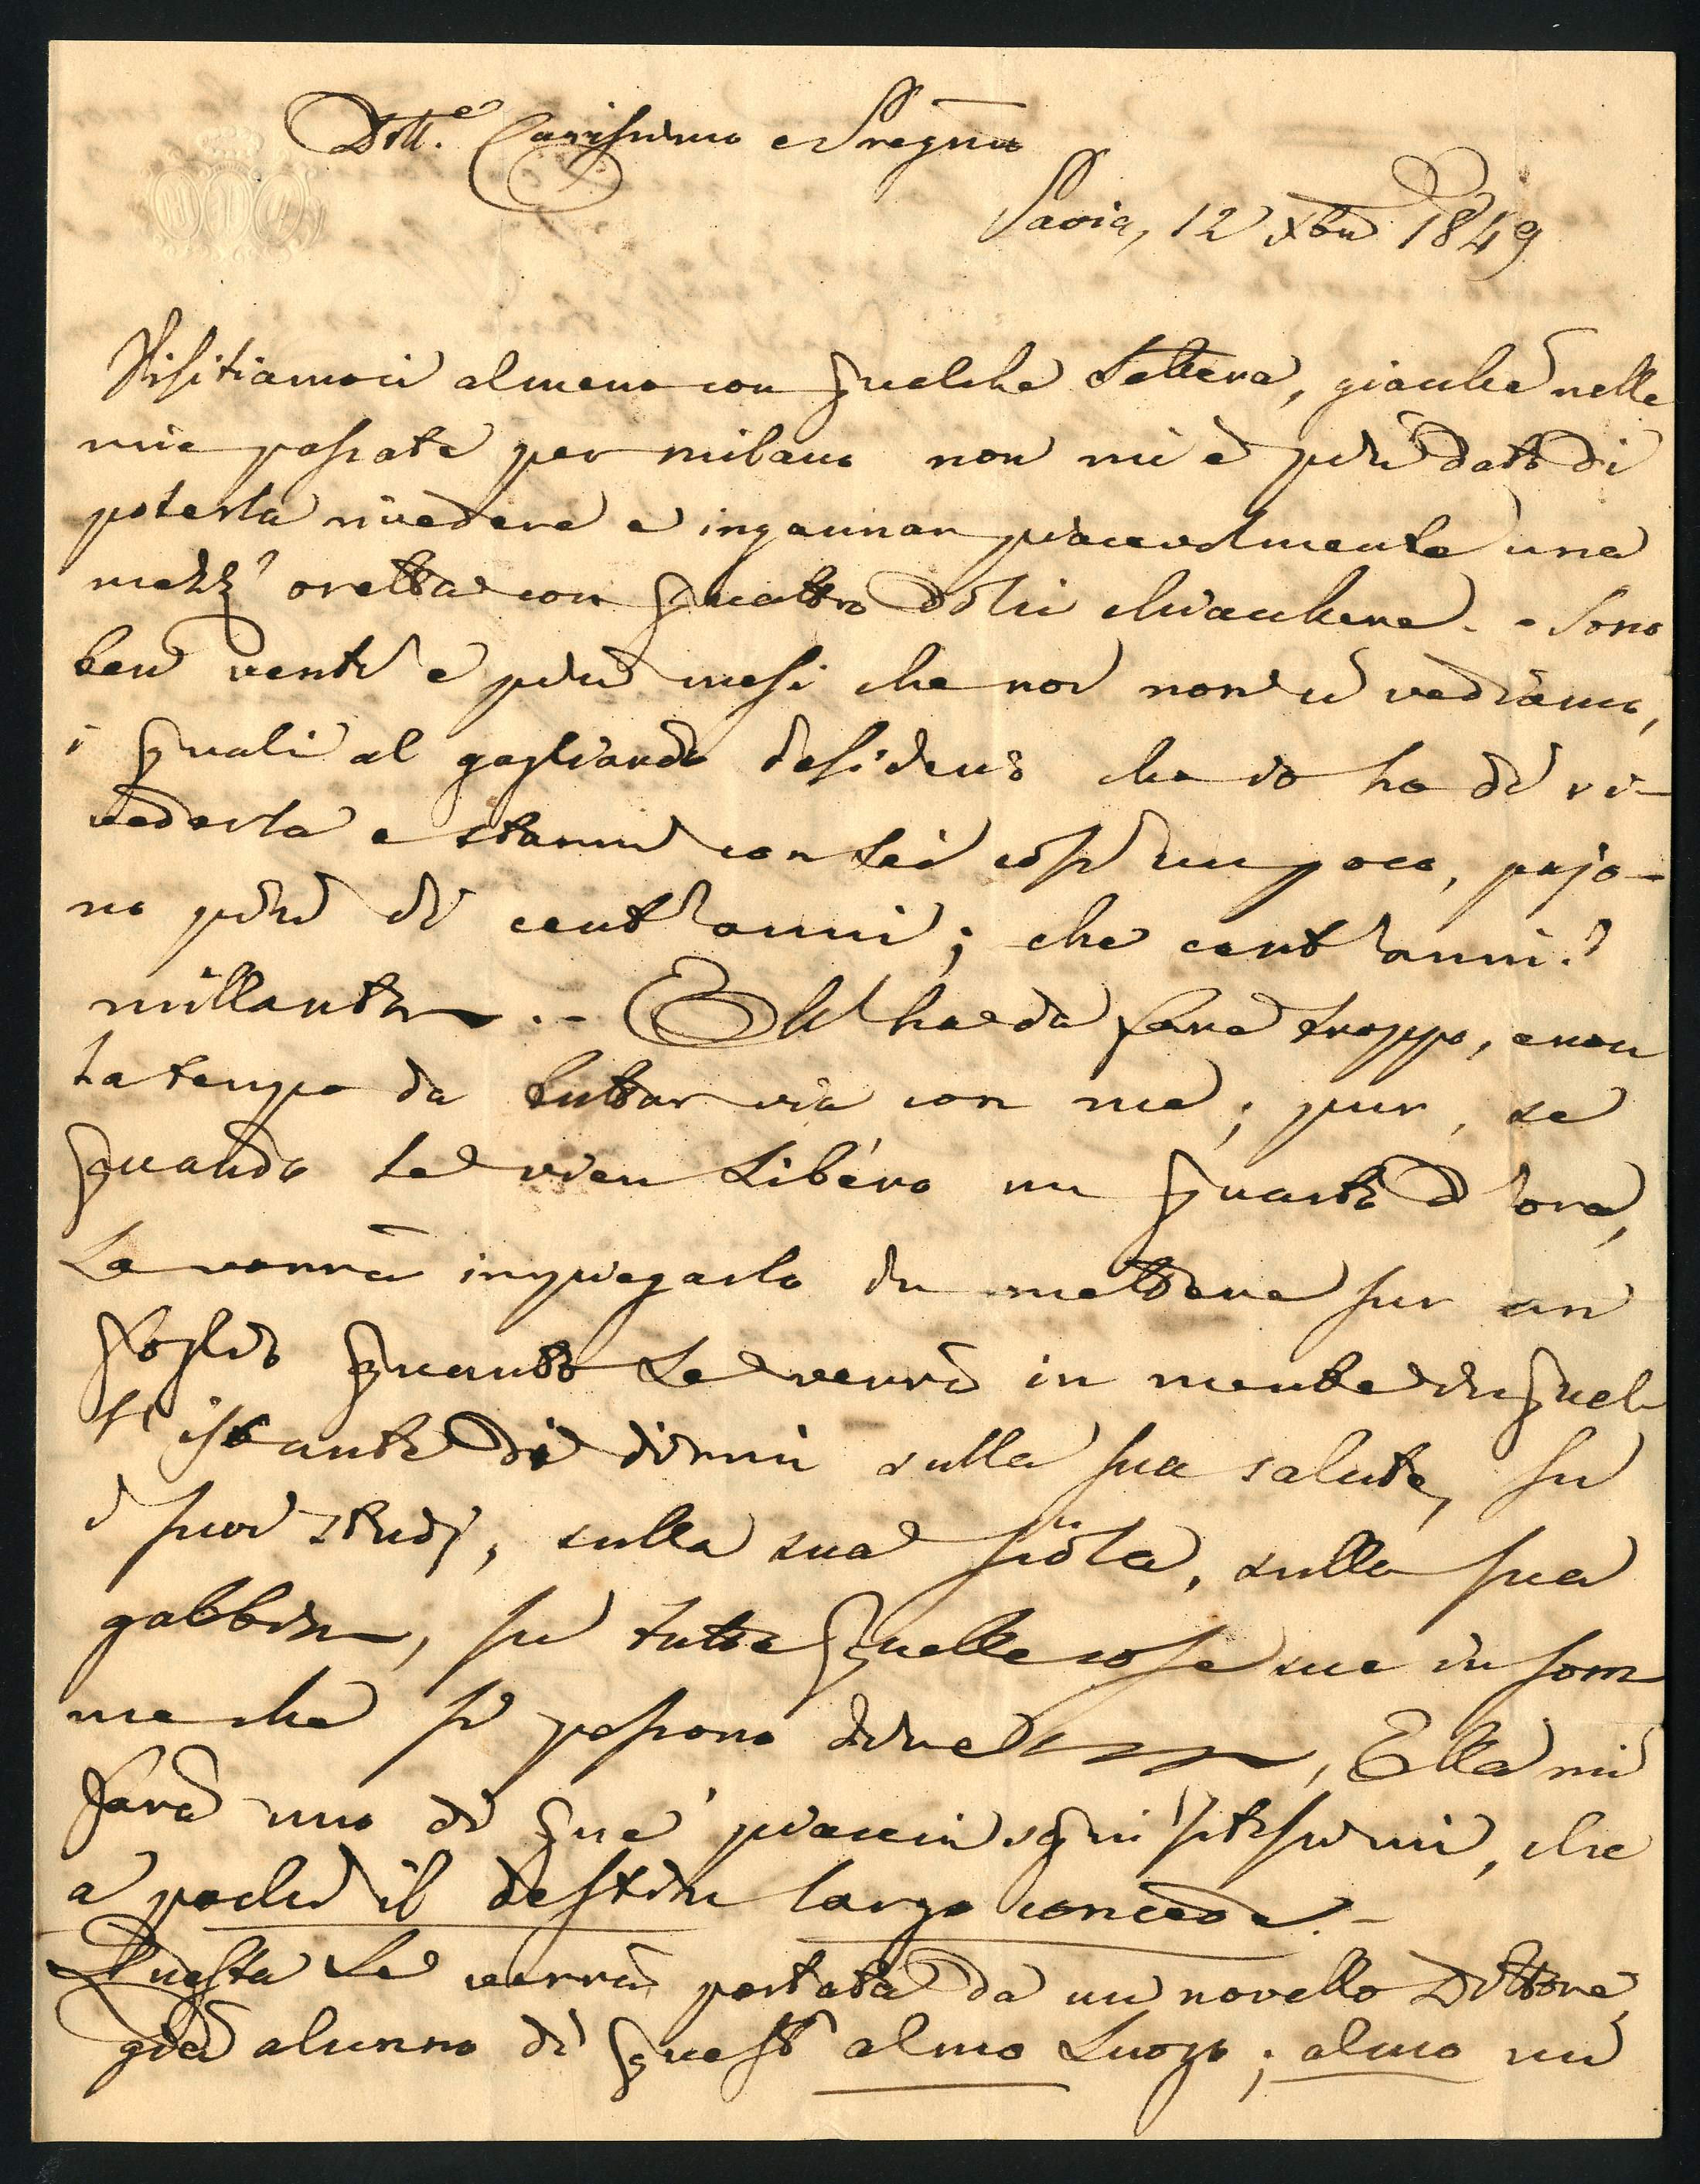 Dott.e Carissimo e Pregmo
Pavia, 12 Xbre 1849
Visitiamoci almeno con qualche Lettera, giacché nelle
mie passate per milano non mi è più dato di
poterla rivedere e ingannar piacevolmente una
mezz' oretta con quattro dolci chiacchere. - Sono
ben venti e più mesi che noi non ci vediamo,
i quali al gagliardo desiderio che io ho di ri-
vederla e starmi con Lei così un poco, pajo-
no più di cent'anni; che cent'anni?
millanta. - Ella ha da fare troppo, e non
ha tempo da buttar via con me; pur, se
quando Le vien Libero un quarto d'ora,
La vorrà impiegarlo in mettere sur un
foglio quanto Le verrà in mente in quel-
l'istante di dirmi sulla sua salute, su
i suoi studj, sulla sua , sulla sua
gabbia, su tutte quelle cose insom
ma che si possono dire, Ella mi
farà uno di que' piaceri squisitissimi, che
a pochi il destin largo concede. -
Questa Le verrà portata da un novello Dottore,
già alunno di quest' almo Luogo; almo un